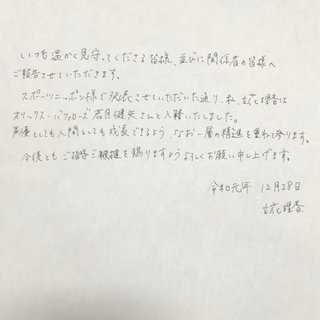 いつも温かく見守ってくださる皆様、並びに関係者の皆様へ
ご報告させていただきます。
スポーツニッポン様で発表させていただいた通り、私、立花理香は
オリックス・バファローズ 若月健矢さんと入籍いたしました。
声優としても人間としても成長できるよう、なお一層の精進を重ねて参ります。
今後ともご指導ご鞭撻を賜りますようよろしくお願い申し上げます。
令和元年 12月28日
立花理香